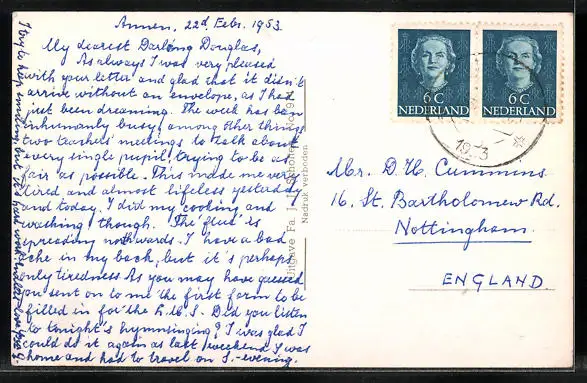 Annen, 22d. Febr. 1953
My dearest Darling Douglas,
As always I was very pleased
with your letter and glad that it didn't
arrive without an envelope, as I had
just been dreaming. The week has been
inhumanly busy, among other things
two teachers' meetings to talk about
every single pupil, trying to be as
fair as possible. This made me very
tired and almost lifeless yesterday
and today. I did my cooking and
washing though. The 'flue' is
spreading northwards. I have a bad
ache in my back, but it's perhaps
only tiredness. As you may have guessed
you sent on to me the first form to be
filled in for the L.M.S. Did you listen
to tonight's hymnsinging? I was glad I
could do it again as last weekend I was
home and had to travel on S.-evening.
I try to keep smiling, but it's hard work.
Uitgave Fa.
Nadruk verboden
6 C
NEDERLAND
6 C
NEDERLAND
Mr. D H Cummins
16, St. Bartholomew Rd.
Nottingham.
ENGLAND